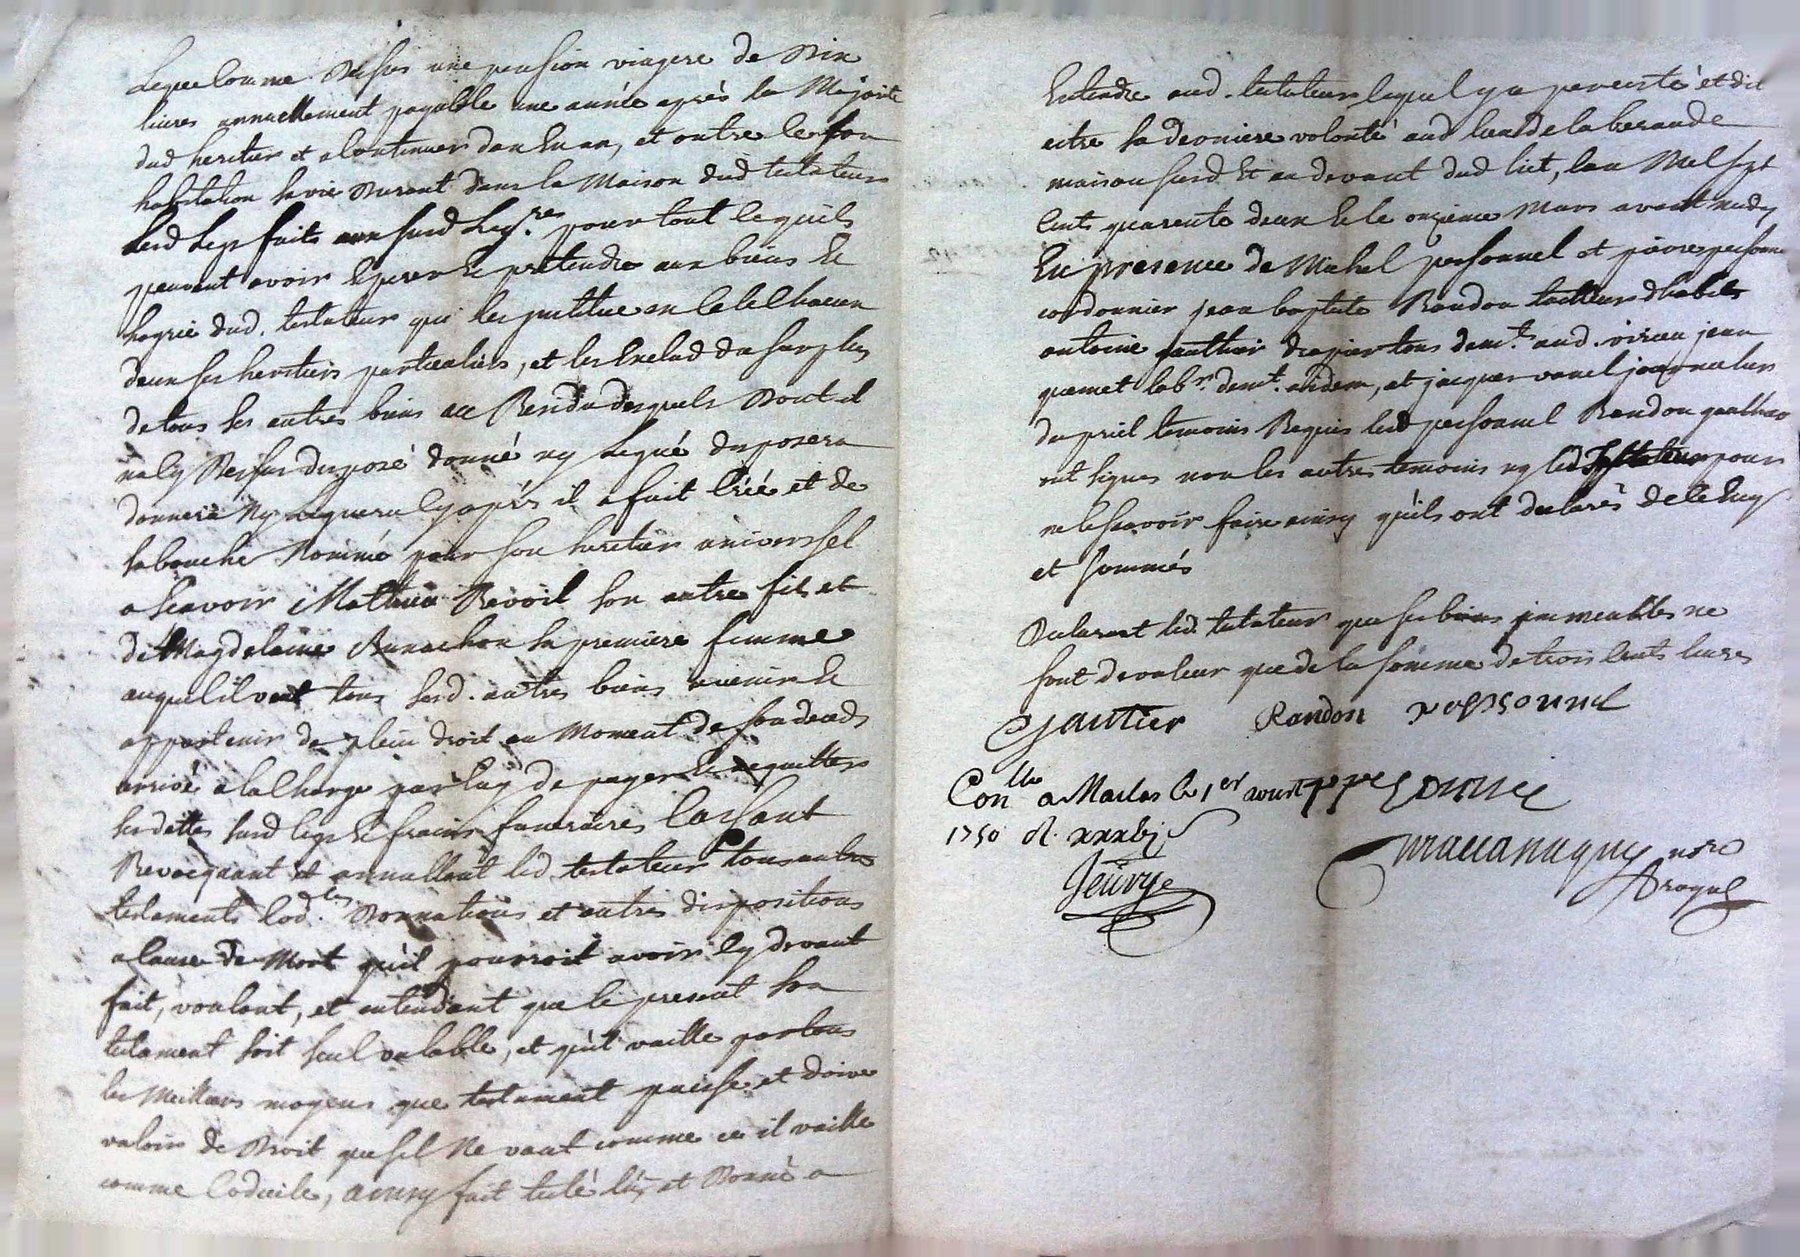 Legue comme dessus une pension viagere de Dix
livres annuellement payable une année aprés la Majorité
dud heritier et a continuer dan En an, et outre le son
habitation sa vie Durant dans la Maison dud testateur
Lesd Legs faits aux susd Leg.res pour tout ce quils
peuvent avoir Esperer Et pretendre aux biens Et
hoyrie dud. testateur qui les justitue en ce le Chacun
deux ses heritiers particuliers, et les Exclud du surplus
de tous ses autres biens au Residu desquels Dont il
na Cy Dessus disposé donné ny Legué disposera
donnera Ny Leguera Cy aprés il a fait Créé et de
sa bouche Nommé pour son heritier universsel
a Scavoir Mathieu Revoil son autre fils et
de Magdelaine Bonnechon sa premiere femme
auquel il veut tous sesd. autres biens avenir Et
appartenir de plein droit au Moment de son deceds
arrivé a la Charge par luy de payer Et acquitter
ses dettes susd legs Et fraix funeraires Cassant
Revocquant et annullant led. testateur tous autres
testaments Cod.les Donnations et autres dispositions
a Cause de Mort qu'il pourroit avoir Cy devant
fait, voulant, et entendant que le present son
testament soit seul valable, et quil vaille par tous
les Meilleurs moyens que testament puisse et doive
valoir de Droit que sil Ne vaut comme ce il vaille
comme Codicile, ainsy fait testé lû et Donné a
Entendre aud. testateur lequel y a percisté et dit
estre sa derniere volonté aud lieu de la beraude
maison susd Et au devant dud lict, lan Mil sept
Cents quarente deux Et le onzieme Mars avant midy
En presence de Michel personnel et pierre personnel
cordonnier jean baptiste Randon tailleur dhabits
antoine gauthier drapier tous dem.t aud. virieu jean
quemet lab.r dem.t aud, et jacques vanel journalier
du pril temoins Requis led personnel Randon gauthier
ont signes non les autres temoins ny led testateur pour
ne le Scavoir faire ainsy quils ont declarés de ce Enqs
et sommés
Declarant led. testateur que ses biens immeubles ne
sont de valeur que de la somme de trois Cents livres
Gautier Randon personnel
Con.lle a Maclas le 1er
1750 R. xxxbj
Jeuvye
nore